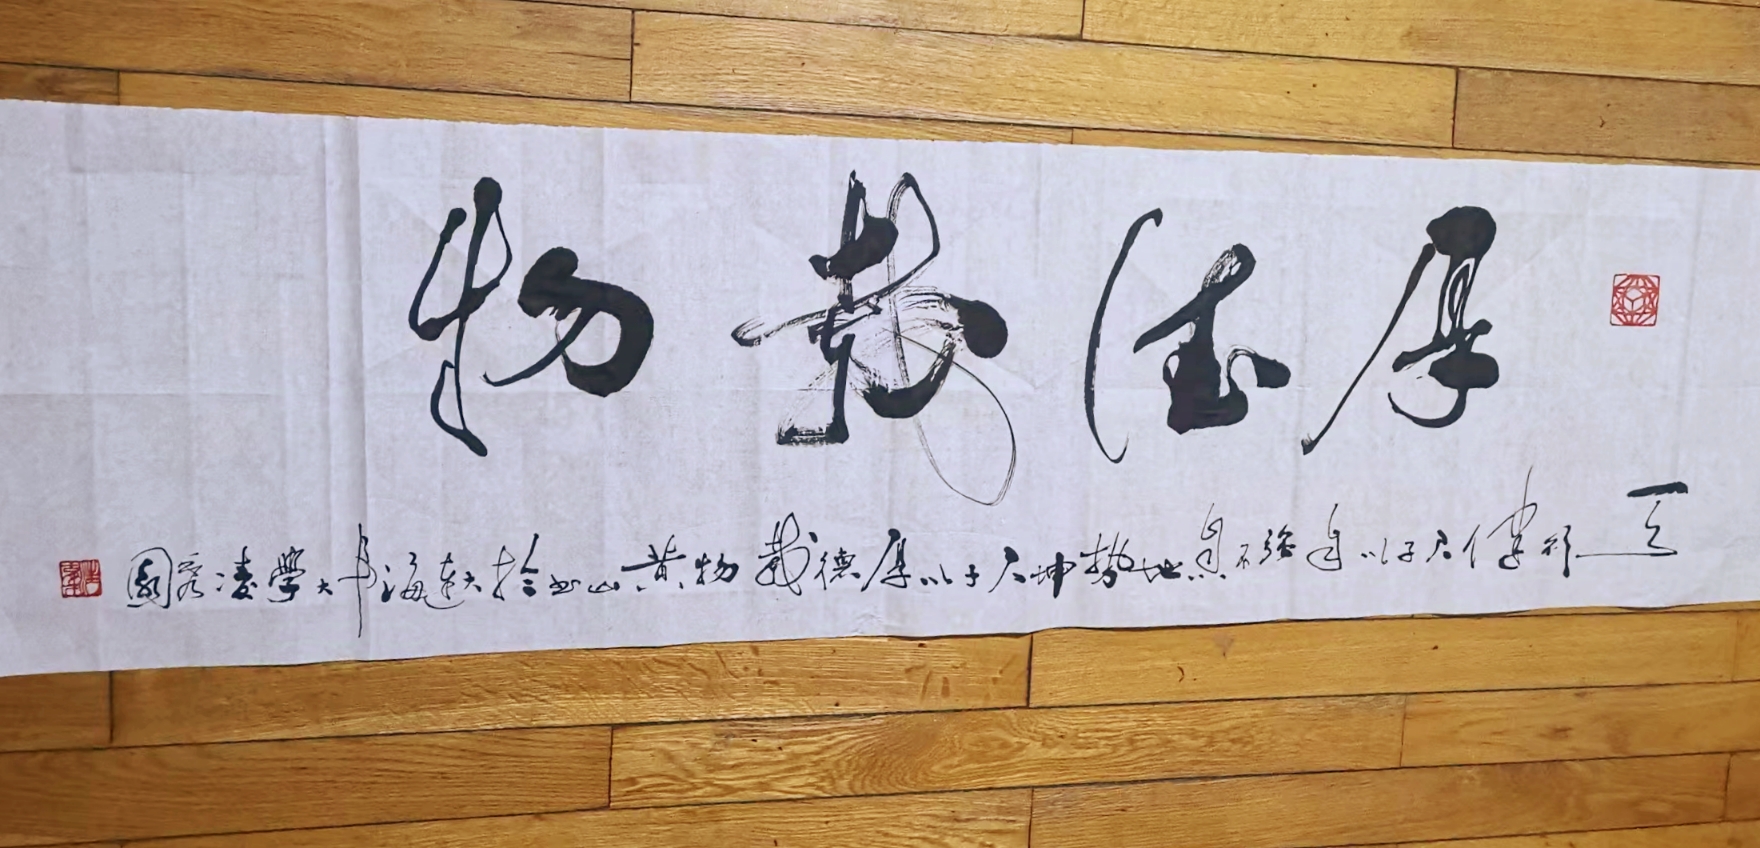 厚德載物
天行健君子以自強不息地勢坤君子以厚德載物黄山书於大連海事大學凌園